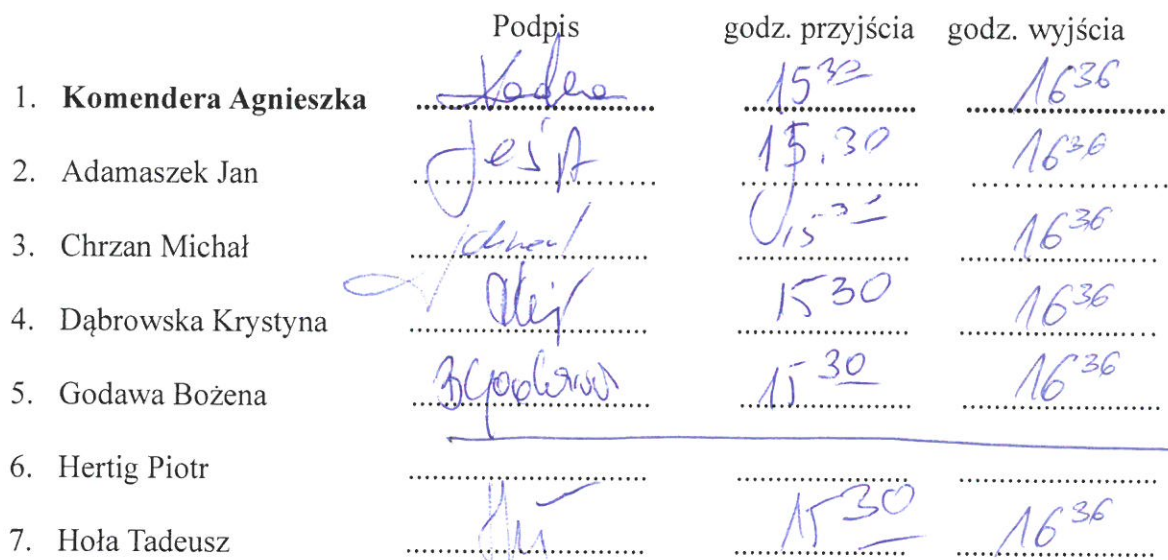 Podpis godz. przyjścia godz. wyjścia
1. Komendera Agnieszka 16 36
2. Adamaszek Jan 15.30 16 36
3. Chrzan Michał 16 36
4. Dąbrowska Krystyna 15 30 16 36
5. Godawa Bożena 15 30 16 36
6. Hertig Piotr
7. Hoła Tadeusz 15 30 16 36